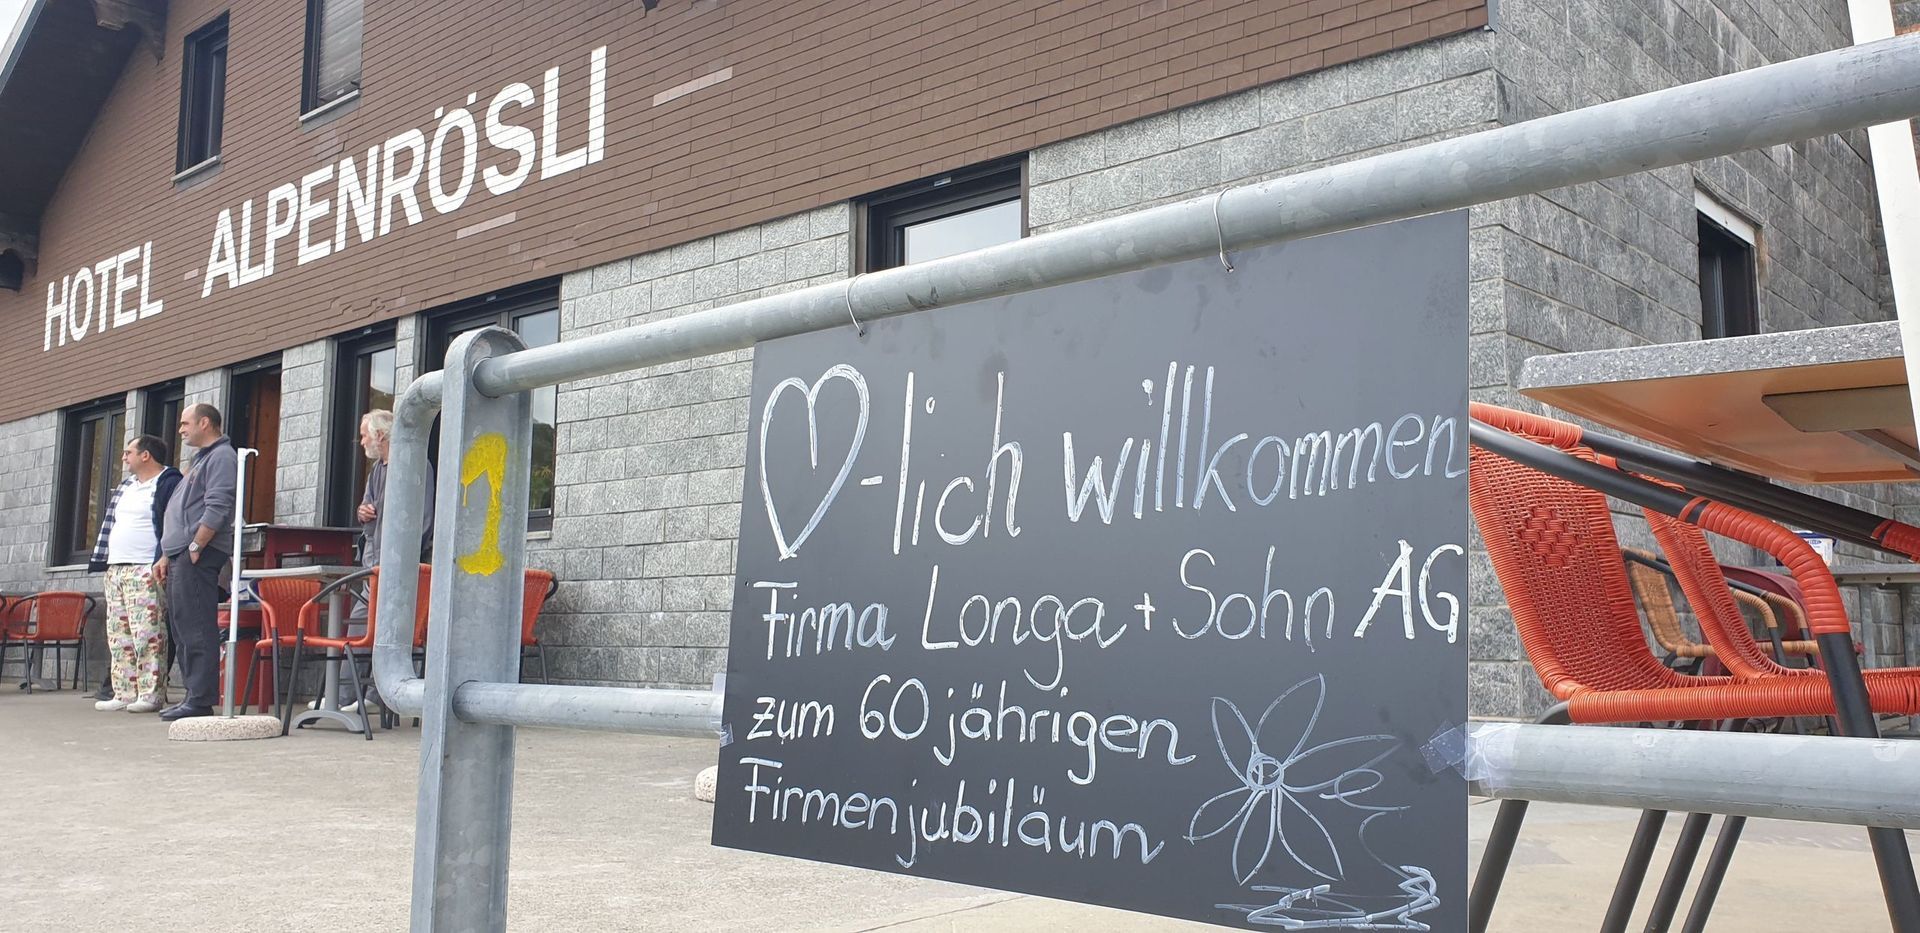 HOTEL ALPENRÖSLI
1
♡-lich willkommen
Firma Longa + Sohn AG
zum 60 jährigen
Firmenjubiläum